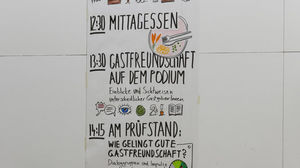 12:30 MITTAGESSEN
13:30 GASTFREUNDSCHAFT
AUF DEM PODIUM
Einblicke und Sichtweisen
unterschiedlicher GastgeberInnen
14:15 AM PRÜFSTAND:
WIE GELINGT GUTE
GASTFREUNDSCHAFT?
Dialoggruppen und Impulse